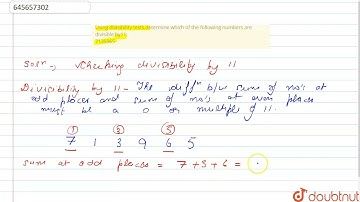 645657302
Using divisibility tests, determine which of the following numbers are
divisible by 11
Soln :- Checking divisibility by 11
Divisibility by 11 - The diffn b/w sum of no's at
odd places and sum of no's at even places
must be a 0 or multiple of 11.
① ③ ⑤
7 1 3 9 6 5
sum at odd places = 7+3+6 =
doubtnut